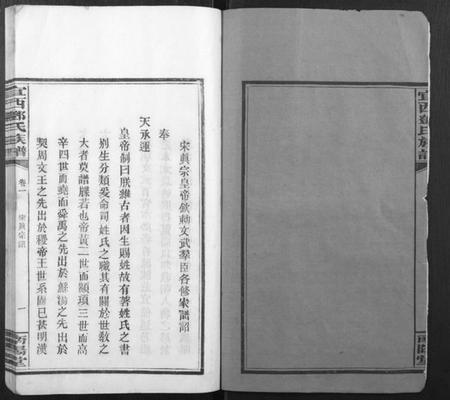 宋眞宗皇帝欽勅文武羣臣各修家譜詔
奉
天承運
皇帝制曰朕維古者因生賜姓故有著姓氏之書
別生分類爰命司姓氏之職其有關於世敎之
大者莫譜牒若也帝黃二世而顓頊三世而高
辛四世而堯而舜禹之先出於鯀湯之先出於
契周文王之先出於稷帝王世系固已甚明漢
宜西鄧氏族譜
卷一
宋眞宗詔
一
南陽堂
宜西鄧氏族譜
南陽堂